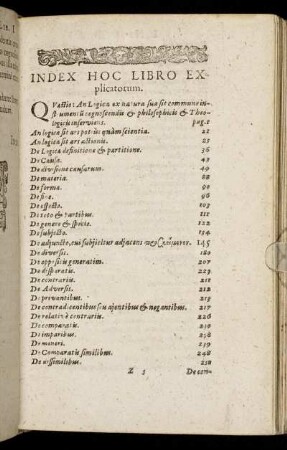 INDEX HOC LIBRO EX-
plicatorum.
QVæstio: An Logica ex natura sua sit commune in-
strumentū cognoscendis & philosophicis & Theo-
logicis inserviens. pag. 1
An logica sit ars potius quàm scientia. 21
An logica sit ars actionis. 25
De Logicæ definitione & partitione. 36
De Causa. 49
De divisione causarum. 60
De materia. 88
De forma. 90
De fine. 98
De effecto. 103
De toto & partibus. 111
De genere & specie. 122
De subjecto. 134
De adjuncto, cui subjicitur adjacens 145
De diversis. 180
De oppositis generatim. 207
De disparatis. 209
De contrariis. 211
De Adversis. 212
De privantibus. 215
De contradicentibus seu ajentibus & negantibus. 217
De relativè contrariis. 226
De comparatis. 230
De imparibus. 238
De minori. 239
De Comparatis similibus. 248
De dissimilibus. 250
De con-